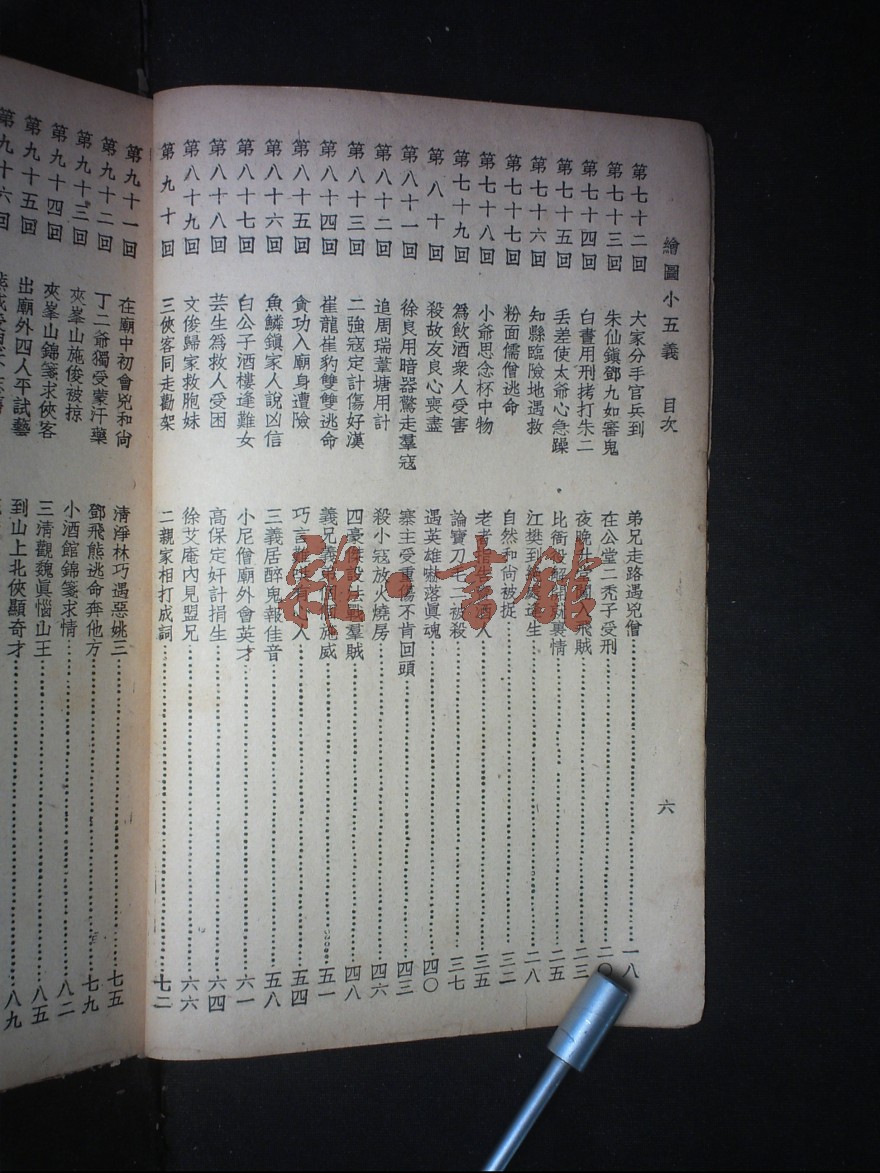 繪圖小五義 目次 六
第七十二回 大家分手官兵到 弟兄走路遇兇僧 一八
第七十三回 朱仙鎮鄧九如審鬼 在公堂二禿子受刑 二〇
第七十四回 白晝用刑拷打朱二 夜晚 入飛賊 二三
第七十五回 丟差使太爺心急躁 比衙役 裏情 二五
第七十六回 知縣臨險地遇救 江樊到 逢生 二八
第七十七回 粉面儒僧逃命 自然和尚被捉 三二
第七十八回 小爺思念杯中物 老者指告 酒人 三五
第七十九回 爲飲酒衆人受害 論寶刀毛二被殺 三七
第八十回 殺故友良心喪盡 遇英雄嚇落眞魂 四〇
第八十一回 徐良用暗器驚走羣寇 寨主受重傷不肯回頭 四三
第八十二回 追周瑞葦塘用計 殺小寇放火燒房 四六
第八十三回 二強寇定計傷好漢 四豪傑設法戰羣賊 四八
第八十四回 崔龍崔豹雙雙逃命 義兄義弟 施威 五一
第八十五回 貪功入廟身遭險 巧言難 有心人 五四
第八十六回 魚鱗鎮家人說凶信 三義居醉鬼報佳音 五八
第八十七回 白公子酒樓逢難女 小尼僧廟外會英才 六一
第八十八回 芸生爲救人受困 高保定奸計捐生 六四
第八十九回 文俊歸家救胞妹 徐艾庵內見盟兄 六六
第九十回 三俠客同走勸架 二親家相打成詞 七二
第九十一回 在廟中初會兇和尚 清淨林巧遇惡姚三 七五
第九十二回 丁二爺獨受蒙汗藥 鄧飛熊逃命奔他方 七九
第九十三回 夾峯山施俊被掠 小酒館錦箋求情 八二
第九十四回 夾峯山錦箋求俠客 三清觀魏眞惱山王 八五
第九十五回 出廟外四人平試藝 到山上北俠顯奇才 八九
第九十六回
雜·書館